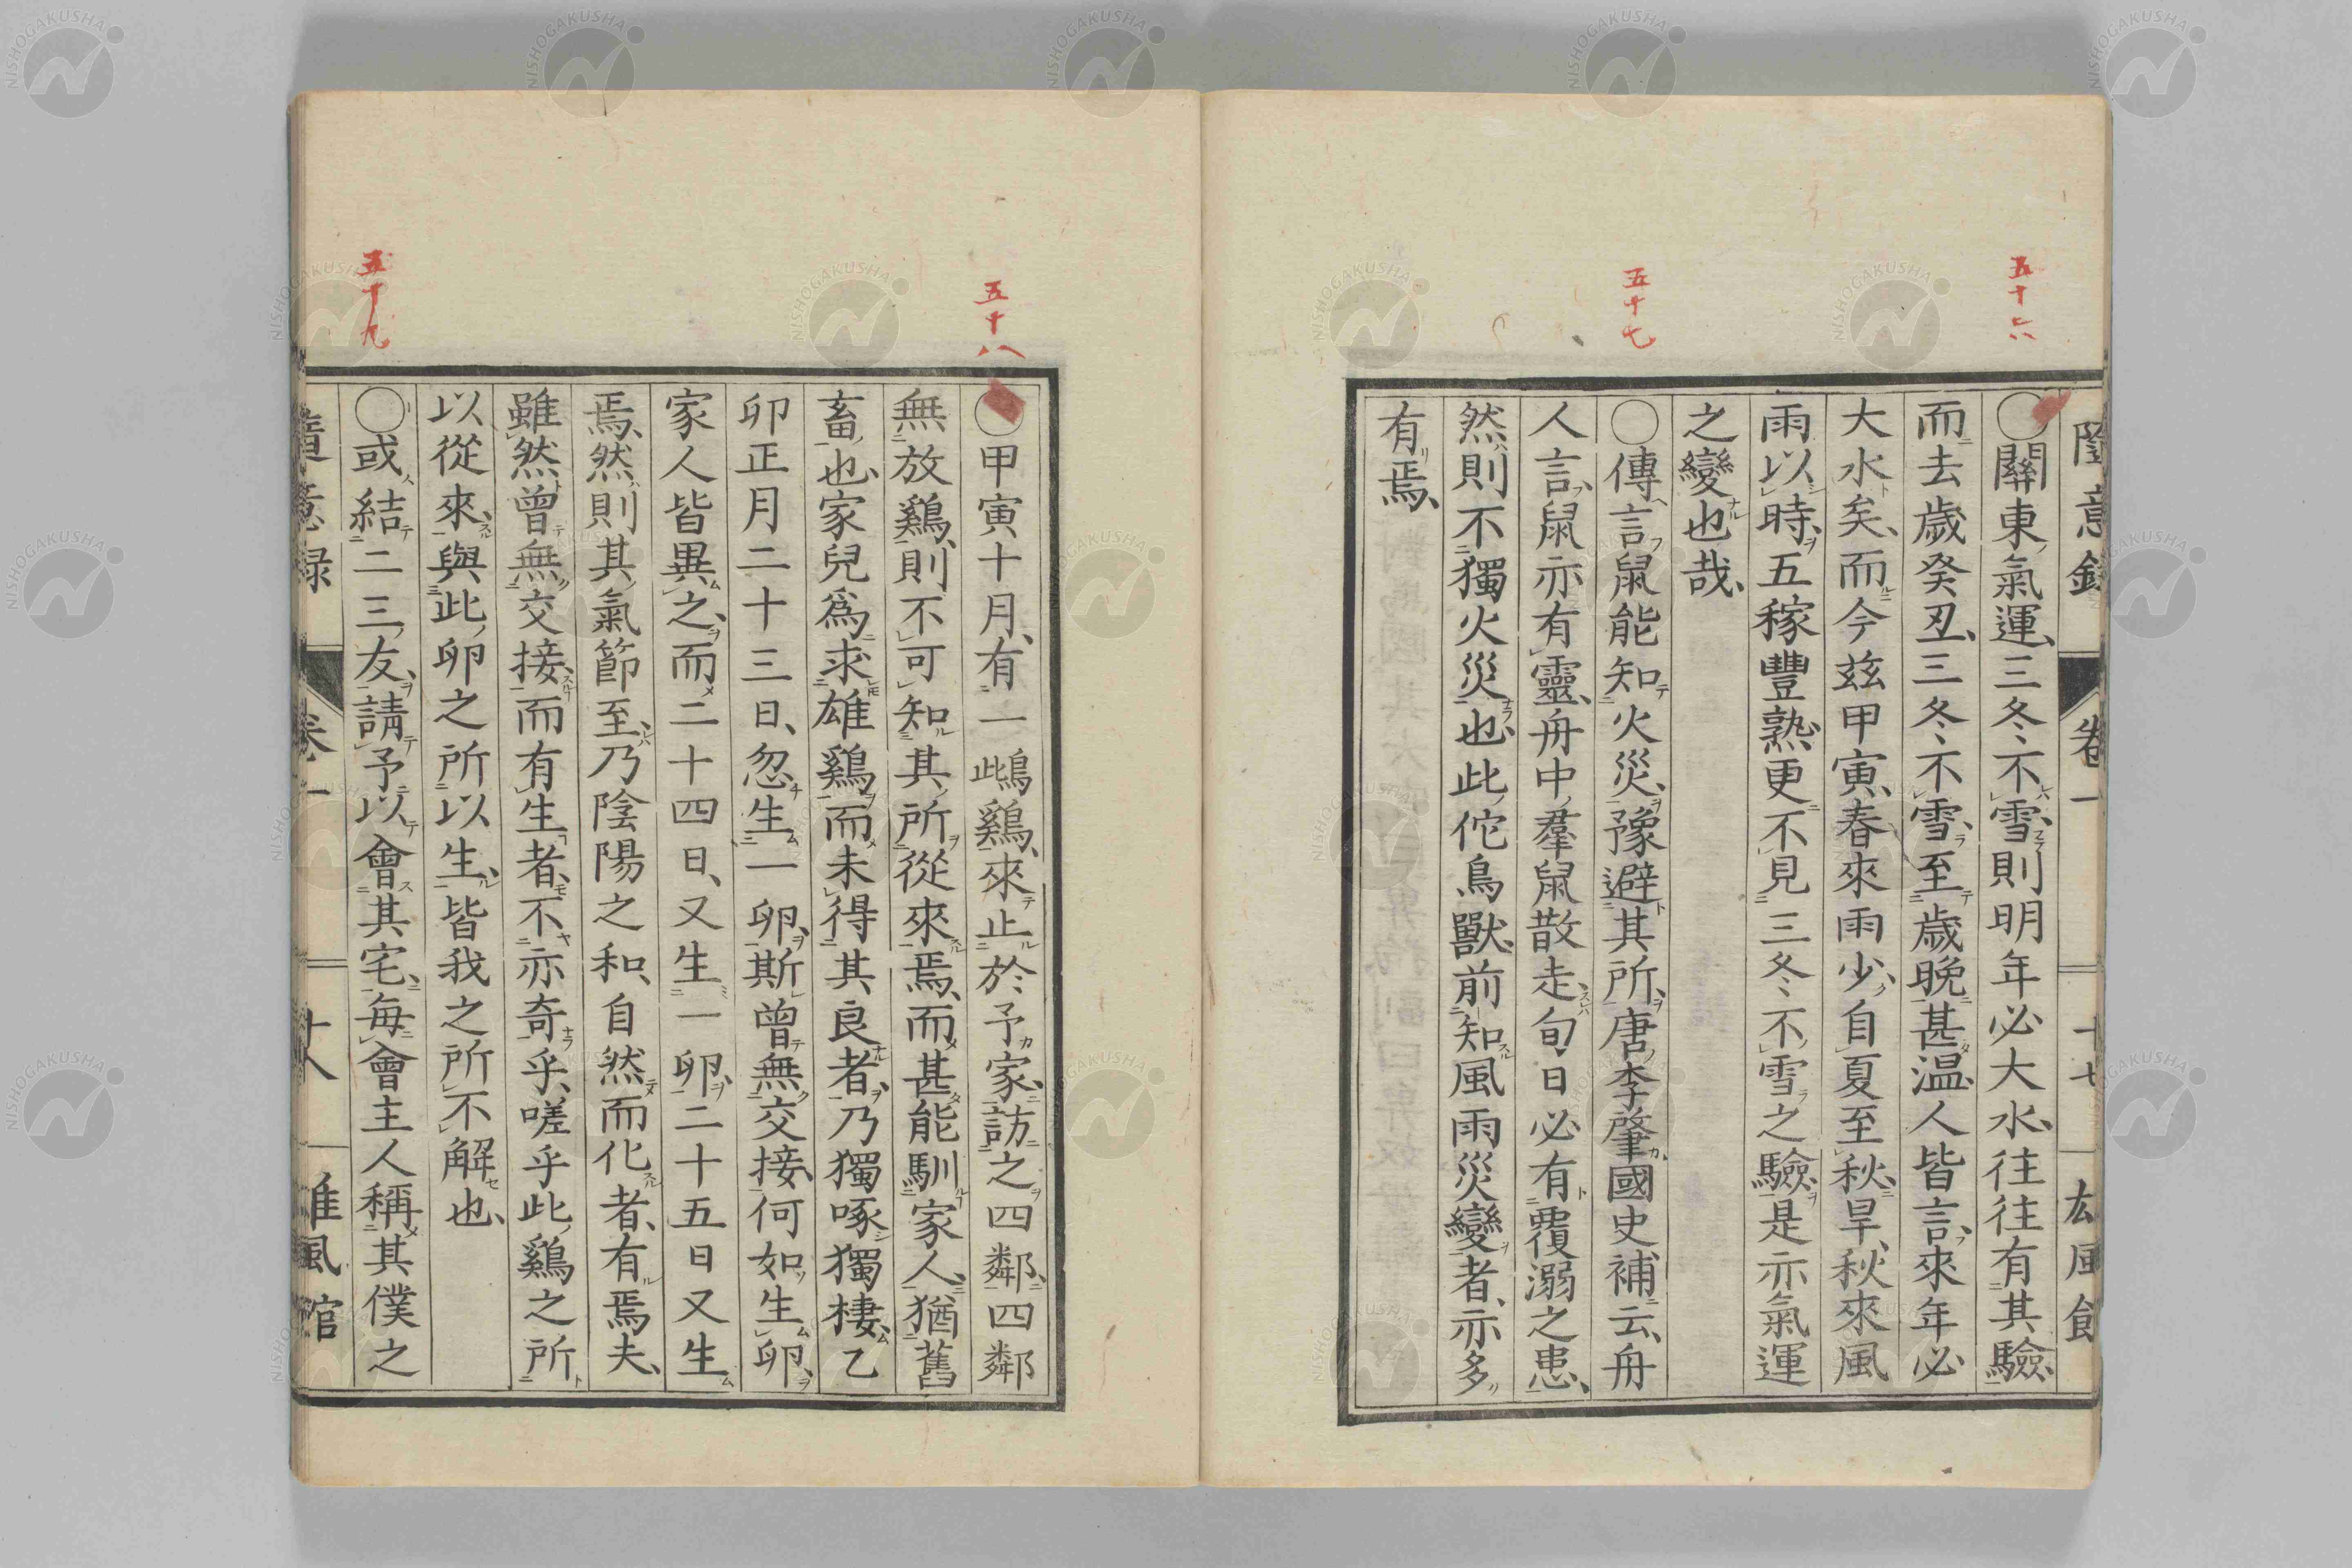 五十六
〇關東氣運、三冬不雪、則明年必大水、往往有其驗、
而去歲癸丑、三冬不雪、至歲晚甚温、人皆言、來年必
大水矣、而今玆甲寅、春來雨少、自夏至秋、旱、秋來風
雨以時、五稼豐熟、更不見三冬不雪之驗、是亦氣運
之變也哉、
五十七
〇傳言鼠能知火災、豫避其所、唐李肇國史補云、舟
人言、鼠亦有靈、舟中羣鼠散走、旬日必有覆溺之患、
然則不獨火災也、此佗鳥獸、前知風雨災變者、亦多
有焉、
卷一
十七
五十八
〇甲寅十月、有一鴜鷄、來止於予家、訪之四鄰、四鄰
無放鷄、則不可知其所從來焉、而甚能馴家人、猶舊
畜也、家兒爲求雄鷄、而未得其良者、乃獨啄獨棲、乙
卯正月二十三日、忽生一卵、斯曾無交接、何如生卵、
家人皆異之、而二十四日、又生一卵、二十五日又生
焉、然則其氣節至、乃陰陽之和、自然而化者、有焉夫、
雖然、曾無交接、而有生者、不亦奇乎、嗟乎此鷄之所
以從來、與此卵之所以生、皆我之所不解也、
五十九
〇或結二三友、請予以會其宅、每會主人稱其僕之
卷一
十八
NISHOGAKUSHA